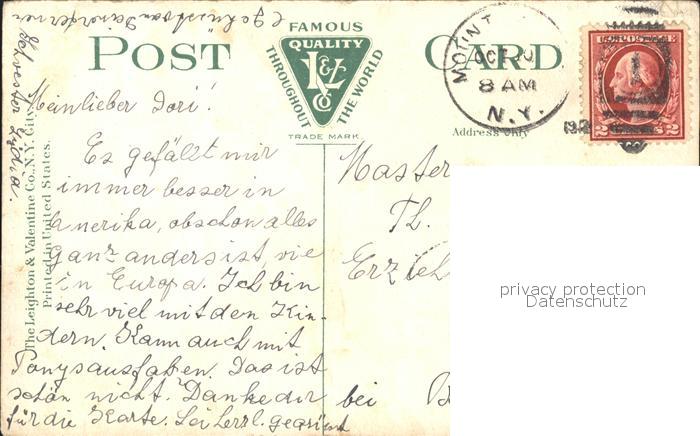 FAMOUS
POST
CARD
QUALITY
L&V
Co
THROUGHOUT
THE WORLD
TRADE MARK.
MOUNT
OCT
8 AM
N.Y.
2
2
Address only
The Leighton & Valentine Co., N.Y. City.
Printed in United States.
Mein lieber Dori!
Es gefällt mir
immer besser in
Amerika, obschon alles
ganz anders ist, wie
in Europa. Ich bin
sehr viel mit den Kin-
dern. Kann auch mit
Ponys ausfahren. Das ist
schön nicht. Danke dir
für die Karte. Sei herzl. gegrüsst
geküsst von Deiner
Schwester Lydia.
Master
Th.
Erzieh
bei
privacy protection
Datenschutz